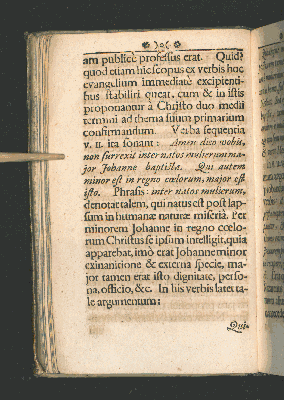 306
am publicè professus erat. Quid?
quod etiam hic scopus ex verbis hoc
evangelium immediatè excipienti-
bus stabiliri queat, cum & in istis
proponantur à Christo duo medii
termini ad thema suum primarium
confirmandum. Verba sequentia
v. 11. ita sonant: Amen dico vobis,
non surrexit inter natos mulierum ma-
jor Johanne baptista. Qui autem
minor est in regno cœlorum, major est
isto. Phrasis: inter natos mulierum,
denotat talem, qui natus est post lap-
sum in humanæ naturæ miseriâ. Per
minorem Johanne in regno cœlo-
rum Christus se ipsum intelligit, quia
apparebat, imò erat Johanne minor
exinanitione & externa specie, ma-
jor tamen erat isto dignitate, perso-
na, officio, &c. In his verbis latet ta-
le argumentum:
Qui-